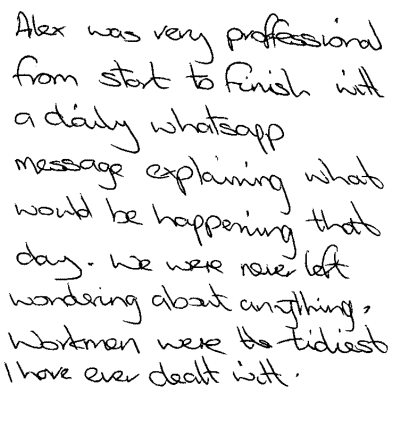 Alex was very proffessional
from start to finish with
a daily whatsapp
message explaining what
would be happening that
day. We were never left
wondering about anything.
Workmen were the tidiest
I have ever dealt with.